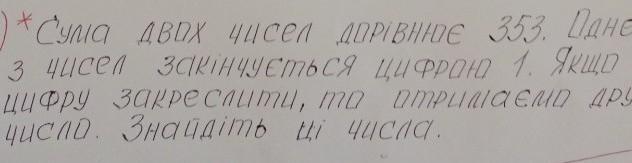 )* Сума двох чисел дорівнює 353. Одне
з чисел закінчується цифрою 1. Якщо
цифру закреслити, то отримаємо дру
число. Знайдіть ці числа.